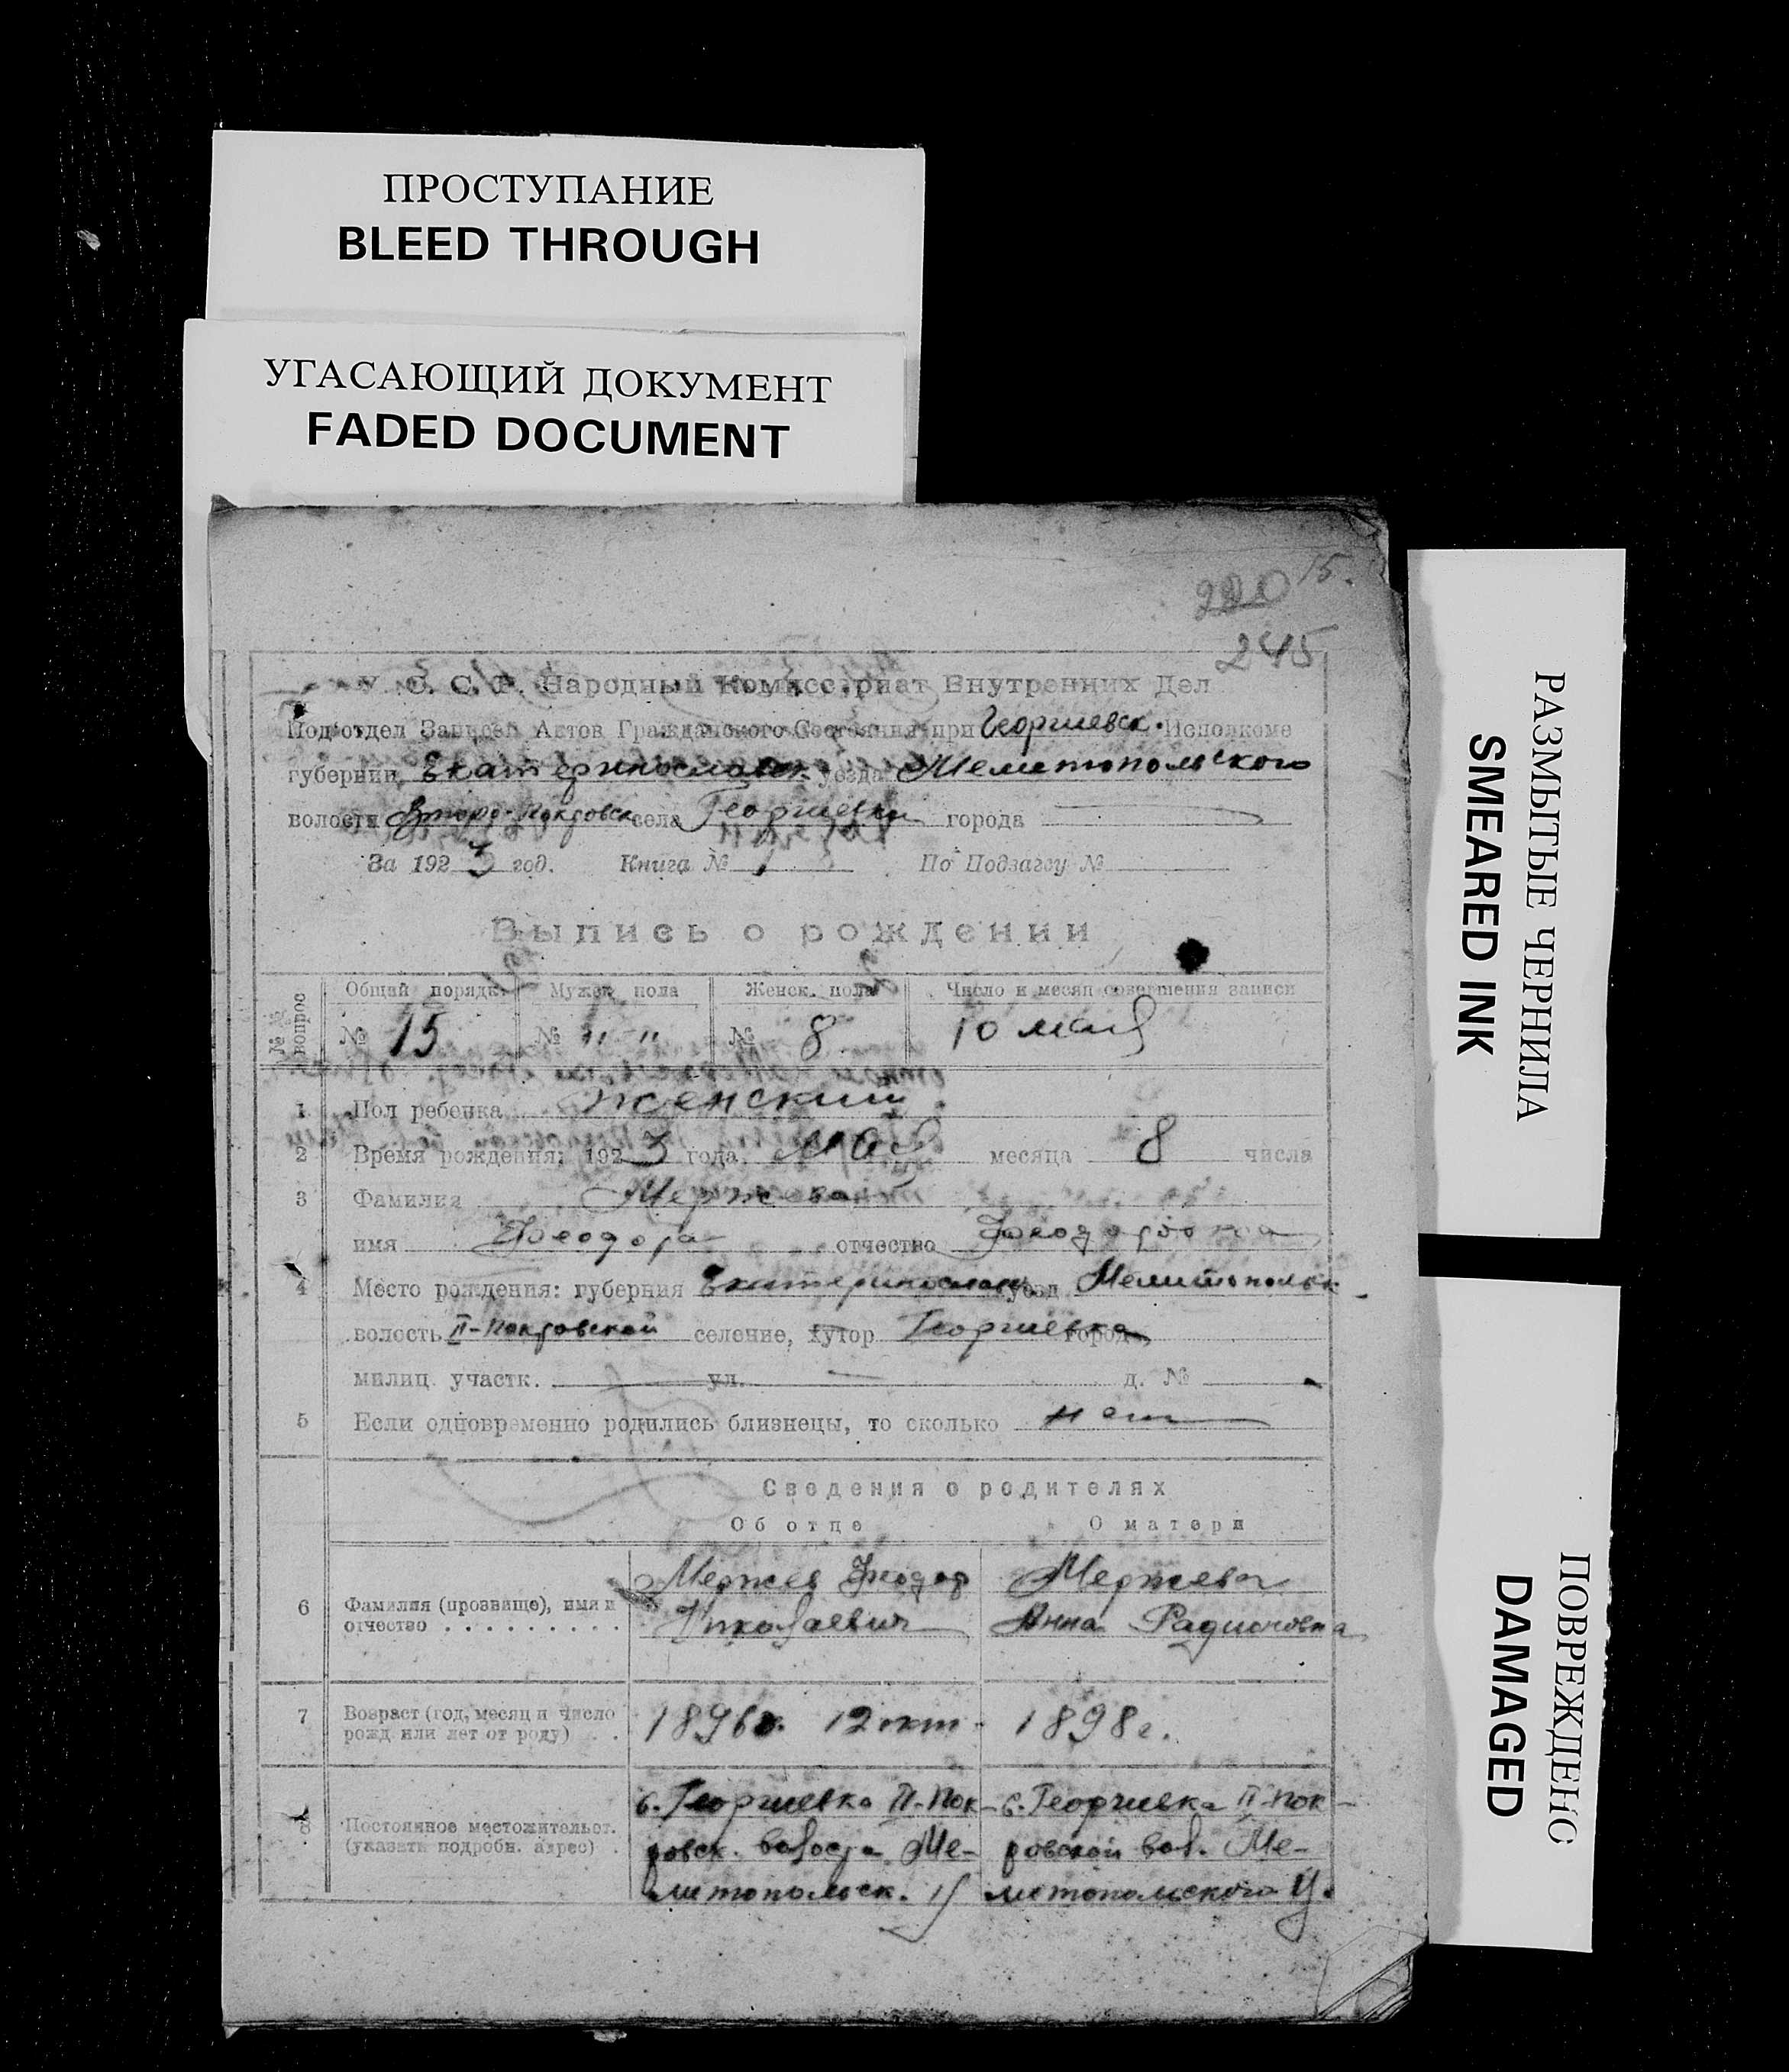 ПРОСТУПАНИЕ
BLEED THROUGH
УГАСАЮЩИЙ ДОКУМЕНТ
FADED DOCUMENT
15.
220
245
У. С. С. Р. Народный Комиссариат Внутренних Дел
Под'отдел Записей Актов Гражданского Состояния при Георгиевск. Исполкоме
губернии Екатеринославск. уезда Мелитопольского
волости Второ-Покровск села Георгиевки города
За 1923 год. Книга № 1 По Подзагсу №
Выпись о рождении
№№ вопрос
Общий порядк. Мужск. пола Женск. пола Число и месяц совершения записи
№ 15 № " " № 8 10 мая
1 Пол ребенка Женский
2 Время рождения: 1923 года мая месяца 8 числа
3 Фамилия Мержева
имя Феодора отчество Феодоровна
4 Место рождения: губерния Екатеринославск. уезд Мелитопольск.
волость II-Покровской селение, хутор Георгиевка город
милиц. участк. ул. д. №
5 Если одновременно родились близнецы, то сколько нет
Сведения о родителях
Об отце О матери
6 Фамилия (прозвище), имя и отчество
Мержев Феодор Николаевич
Мержева Анна Радионовна
7 Возраст (год, месяц и число рожд. или лет от роду)
1896г. 12 окт.
1898г.
8 Постоянное местожительст. (указать подробн. адрес)
с. Георгиевка II-Пок-
ровск. волости Ме-
литопольск. у
с. Георгиевка II-Пок-
ровской вол. Ме-
литопольского у.
РАЗМЫТЫЕ ЧЕРНИЛА
SMEARED INK
ПОВРЕЖДЕНО
DAMAGED